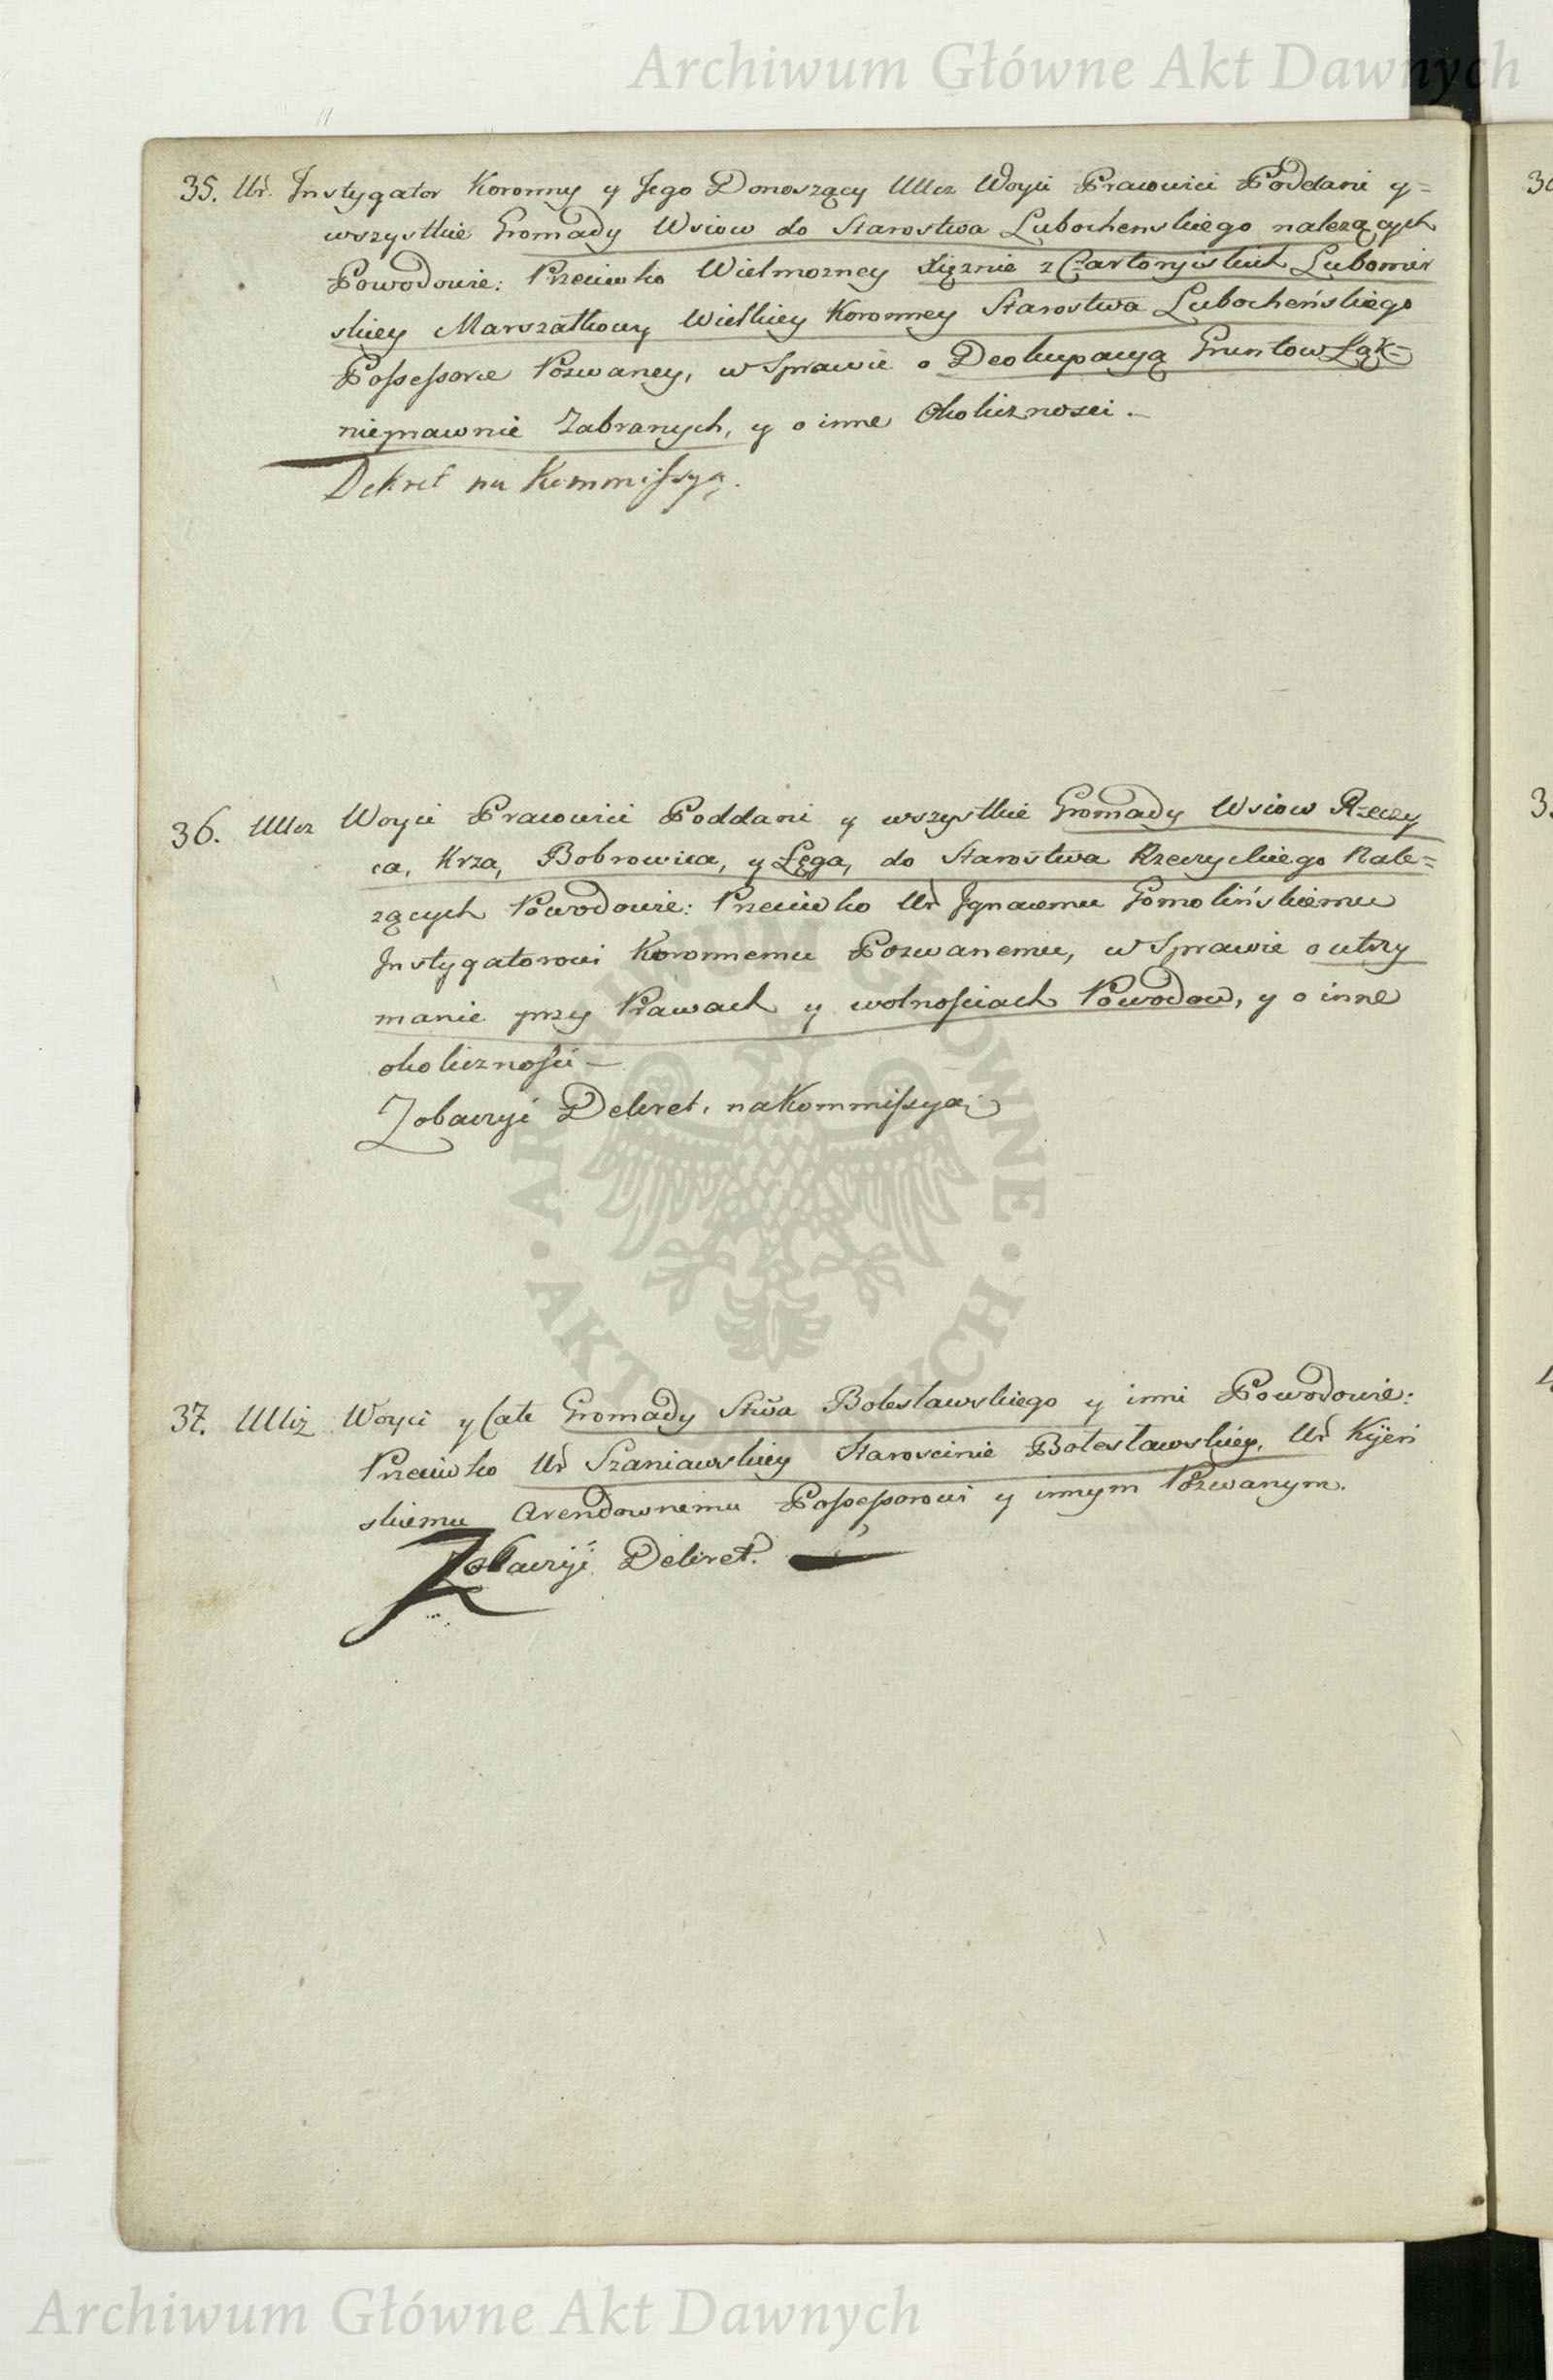 Archiwum Główne Akt Dawnych
35. Ur. Instygator Koronny y Jego Donoszący Ucz Woyci Pracowici Poddani y=
wszystkie Gromady Wsiow do Starostwa Lubochenskiego nalezących
Powodowie: Przeciwko Wielmozney Xiężnie z Czartoryiskich Lubomir
skiey Marszałkowy Wielkiey Koronney Starostwa Lubocheńskiego
Possessorce Pozwaney, w Sprawie o Deokupacyą Gruntow Łąk=
nieprawnie Zabranych, y o inne Okolicznosci.—
Dekret na Kommissyą.
36. Ucz Woyci Pracowici Poddani y wszystkie Gromady Wsiow Rzeczy
ca, Krza, Bobrowica, y Łęga, do Starostwa Rzeczyckiego Nale=
zących Powodowie: Przeciwko Ur Ignacemu Gomolińskiemu
Instygatorowi Koronnemu Pozwanemu, w Sprawie o utrzy
manie przy Prawach y wolnościach Powodow, y o inne
okoliczności—
Zobaczyć Dekret. na Kommissyą
37. Ucz Woyci y Całe Gromady Stwa Bolesławskiego y inni Powodowie:
Przeciwko Ur Szaniawskiey Staroscinie Bolesławskiey, Ur Kijeń
skiemu Arendownemu Possessorowi y innym Pozwanym.
Zobaczyć Dekret.
ARCHIWUM GŁÓWNE · AKT DAWNYCH ·
Archiwum Główne Akt Dawnych